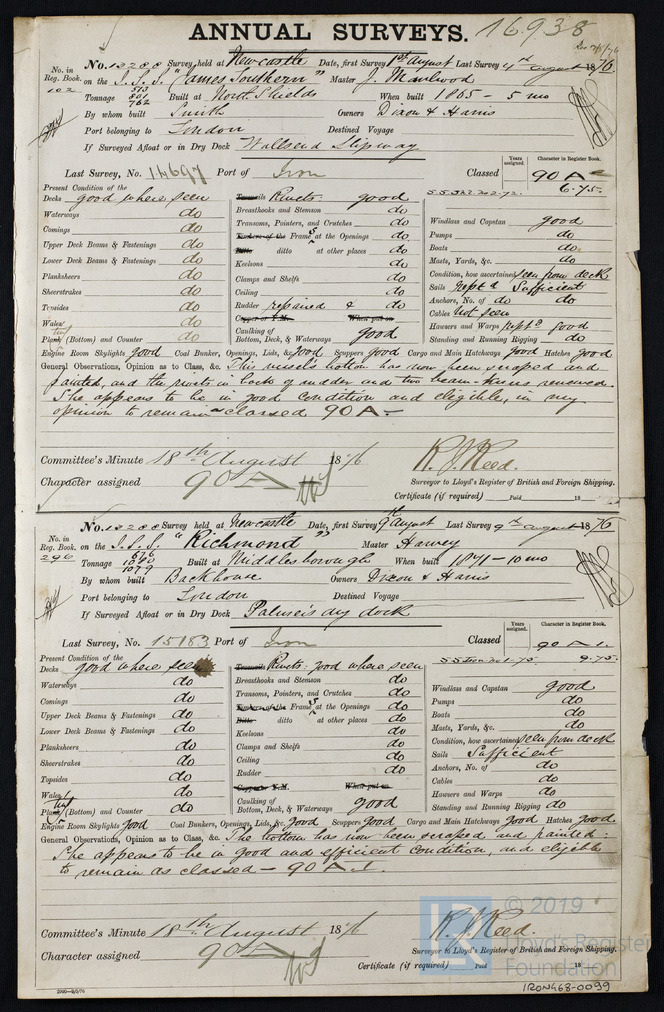 ANNUAL SURVEYS. 16938
No. in Reg. Book. 102
No. 13288 Survey held at Newcastle Date, first Survey 1st August Last Survey 4th August 1876
on the I.S.S. "James Southern" Master J.
Tonnage 513 801 762 Built at North Shields When built 1865 - 5 mo
By whom built Smith Owners Dixon & Harris
Port belonging to London Destined Voyage
If Surveyed Afloat or in Dry Dock Wallsend Slipway
Last Survey, No. 14697 Port of Iron Classed
Years assigned.
Character in Register Book.
90 A
6.75.
Present Condition of the
Decks good where seen
Waterways do
Comings do
Upper Deck Beams & Fastenings do
Lower Deck Beams & Fastenings do
Planksheers do
Sheerstrakes do
Topsides do
Wales do
Plank (Bottom) and Counter do
Treenails Rivets. good
Breasthooks and Stemson do
Transoms, Pointers, and Crutches do
Timbers of the Frames at the Openings do
Ditto ditto at other places do
Keelsons do
Clamps and Shelfs do
Ceiling do
Rudder repaired & do
Copper or Y.M. When put on
Caulking of Bottom, Deck, & Waterways good
Windlass and Capstan good
Pumps do
Boats do
Masts, Yards, &c. do
Condition, how ascertained seen from deck
Sails Rept'd Sufficient
Anchors, No. of do do
Cables not seen
Hawsers and Warps Rept'd good
Standing and Running Rigging do
Engine Room Skylights good Coal Bunker, Openings, Lids, &c. good Scuppers good Cargo and Main Hatchways good Hatches good
General Observations, Opinion as to Class, &c. This vessel's bottom has now been scraped and
painted, and the rivets in back of rudder and two beam-knees renewed.
She appears to be in good condition and eligible, in my
opinion to remain as classed 90 A
Committee's Minute 18th August 1876
R. J. Reed.
Surveyor to Lloyd's Register of British and Foreign Shipping.
Character assigned 90 A
Certificate (if required) Paid 18
No. in Reg. Book. 296
No. 13288 Survey held at Newcastle Date, first Survey 9th August Last Survey 9th August 1876
on the I.S.S. "Richmond" Master Harvey
Tonnage 676 1040 1079 Built at Middlesborough When built 1871 - 10 mo
By whom built Backhouse Owners Dixon & Harris
Port belonging to London Destined Voyage
If Surveyed Afloat or in Dry Dock Palmer's dry dock
Last Survey, No. 15183 Port of Iron Classed
Years assigned.
Character in Register Book.
90 A.1.
9.75.
Present Condition of the
Decks good where seen
Waterways do
Comings do
Upper Deck Beams & Fastenings do
Lower Deck Beams & Fastenings do
Planksheers do
Sheerstrakes do
Topsides do
Wales do
Plank (Bottom) and Counter do
Treenails Rivets. good where seen
Breasthooks and Stemson do
Transoms, Pointers, and Crutches do
Timbers of the Frames at the Openings do
Ditto ditto at other places do
Keelsons do
Clamps and Shelfs do
Ceiling do
Rudder do
Copper or Y.M. When put on
Caulking of Bottom, Deck, & Waterways good
Windlass and Capstan good
Pumps do
Boats do
Masts, Yards, &c. do
Condition, how ascertained seen from deck
Sails Sufficient
Anchors, No. of do
Cables do
Hawsers and Warps do
Standing and Running Rigging do
Engine Room Skylights good Coal Bunker, Openings, Lids, &c. good Scuppers good Cargo and Main Hatchways good Hatches good
General Observations, Opinion as to Class, &c. The bottom has now been scraped and painted:
She appears to be in good and efficient condition, and eligible
to remain as classed - 90 A.1.
Committee's Minute 18th August 1876
R. J. Reed.
Surveyor to Lloyd's Register of British and Foreign Shipping.
Character assigned 90 A
Certificate (if required) Paid 18
© 2019
Lloyd's Register
Foundation
IRON468-0099